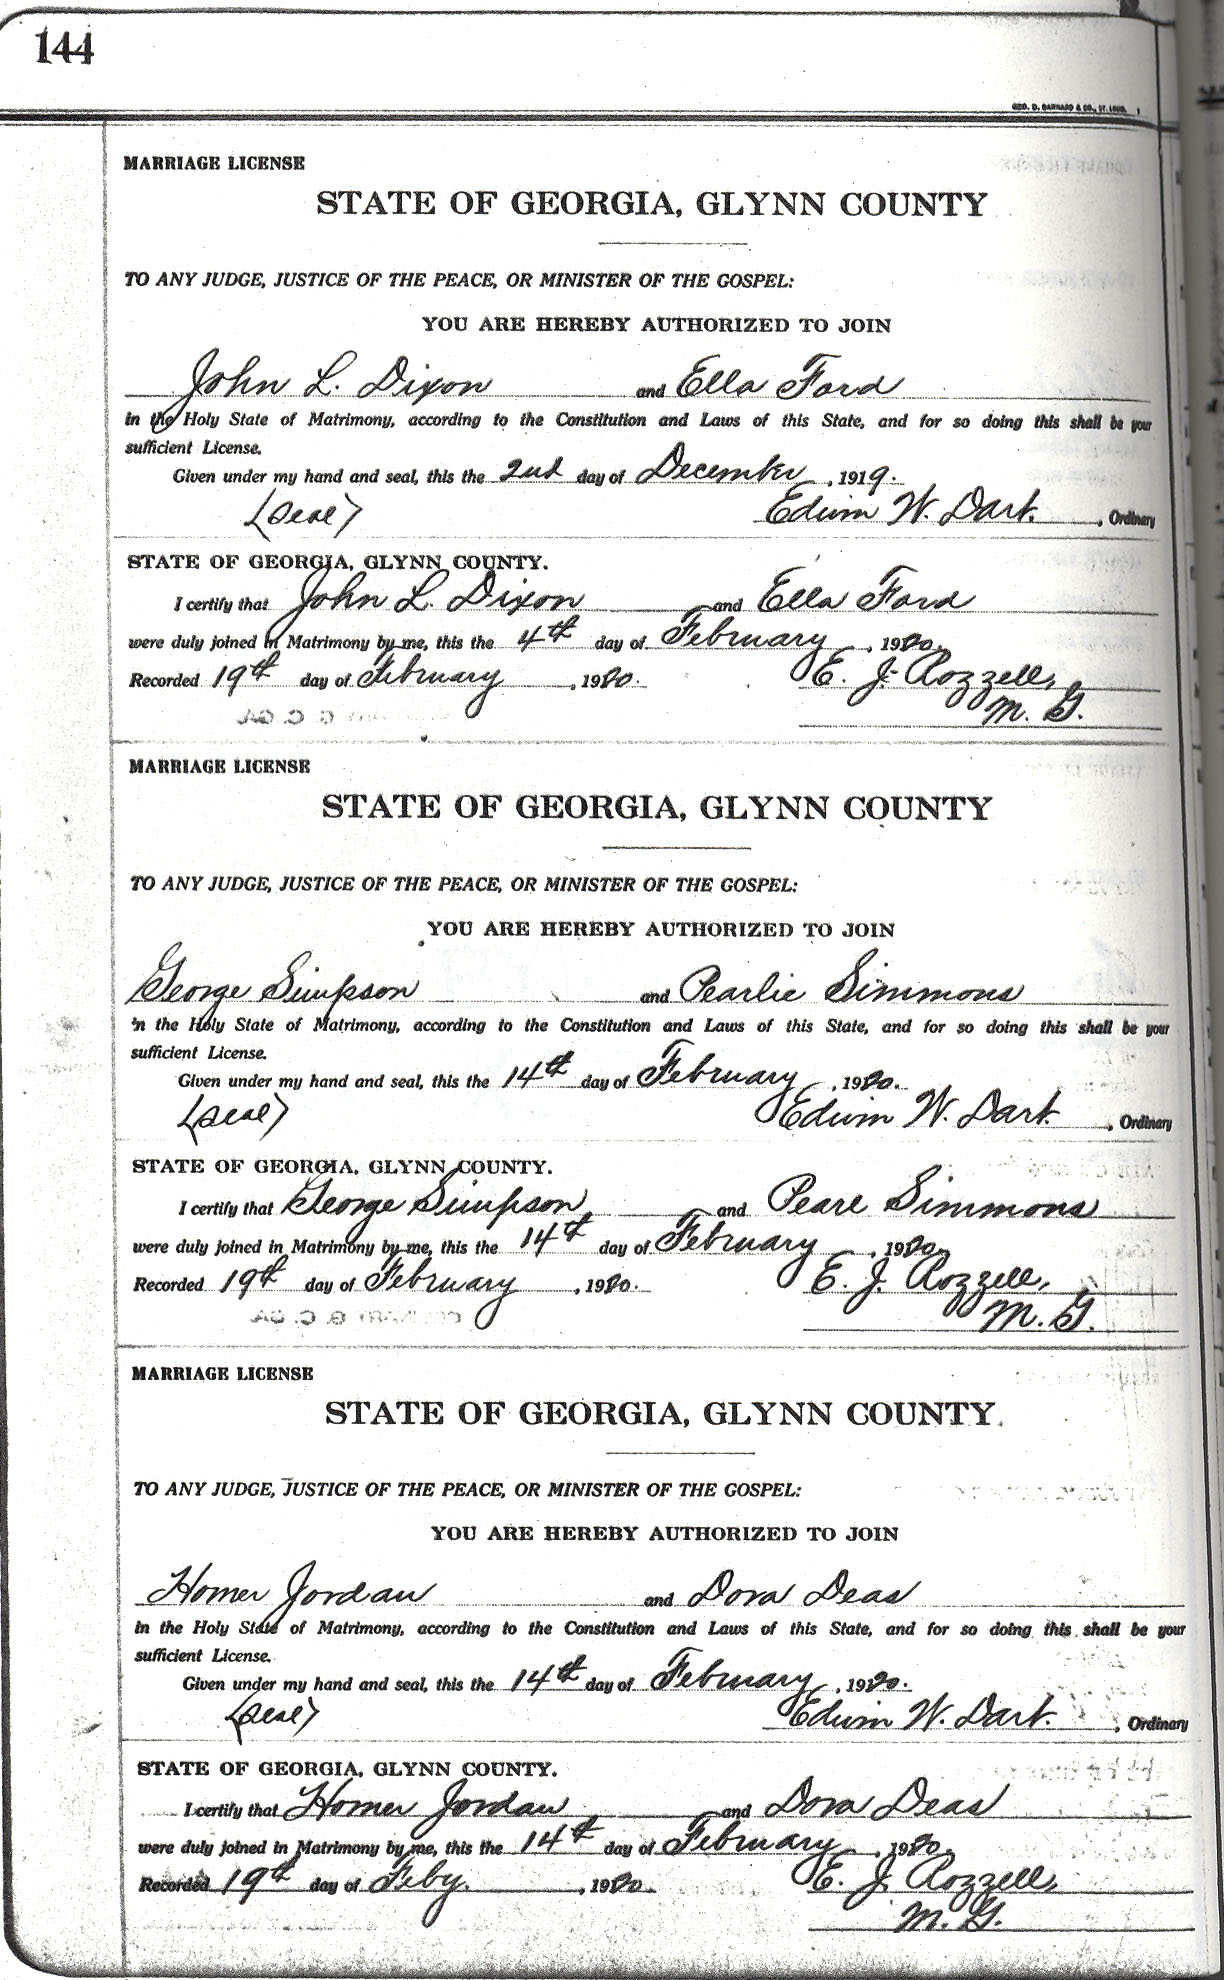 144
GEO. D. BARNARD & CO., ST. LOUIS.
MARRIAGE LICENSE
STATE OF GEORGIA, GLYNN COUNTY
TO ANY JUDGE, JUSTICE OF THE PEACE, OR MINISTER OF THE GOSPEL:
YOU ARE HEREBY AUTHORIZED TO JOIN
John L. Dixon and Ella Ford
in the Holy State of Matrimony, according to the Constitution and Laws of this State, and for so doing this shall be your
sufficient License.
Given under my hand and seal, this the 2nd day of December, 1919.
(Seal) Edwin W. Dart, Ordinary
STATE OF GEORGIA, GLYNN COUNTY.
I certify that John L. Dixon and Ella Ford
were duly joined in Matrimony by me, this the 4th day of February, 1920.
Recorded 19th day of February, 1920. E. J. Rozzell,
M. G.
MARRIAGE LICENSE
STATE OF GEORGIA, GLYNN COUNTY
TO ANY JUDGE, JUSTICE OF THE PEACE, OR MINISTER OF THE GOSPEL:
YOU ARE HEREBY AUTHORIZED TO JOIN
George Simpson and Pearlie Simmons
in the Holy State of Matrimony, according to the Constitution and Laws of this State, and for so doing this shall be your
sufficient License.
Given under my hand and seal, this the 14th day of February, 1920.
(Seal) Edwin W. Dart, Ordinary
STATE OF GEORGIA, GLYNN COUNTY.
I certify that George Simpson and Pearl Simmons
were duly joined in Matrimony by me, this the 14th day of February, 1920.
Recorded 19th day of February, 1920. E. J. Rozzell,
M. G.
MARRIAGE LICENSE
STATE OF GEORGIA, GLYNN COUNTY.
TO ANY JUDGE, JUSTICE OF THE PEACE, OR MINISTER OF THE GOSPEL:
YOU ARE HEREBY AUTHORIZED TO JOIN
Homer Jordan and Dora Deas
in the Holy State of Matrimony, according to the Constitution and Laws of this State, and for so doing this shall be your
sufficient License.
Given under my hand and seal, this the 14th day of February, 1920.
(Seal) Edwin W. Dart, Ordinary
STATE OF GEORGIA, GLYNN COUNTY.
I certify that Homer Jordan and Dora Deas
were duly joined in Matrimony by me, this the 14th day of February, 1920.
Recorded 19th day of Feby., 1920. E. J. Rozzell,
M. G.